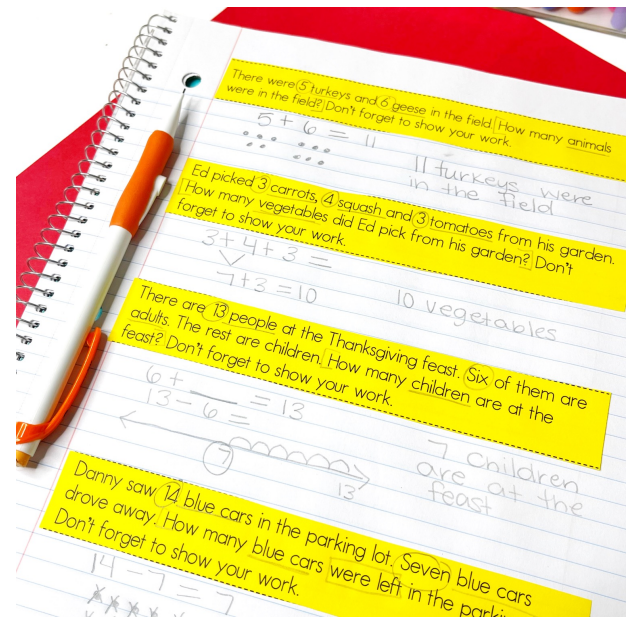 There were 5 turkeys and 6 geese in the field. How many animals
were in the field? Don't forget to show your work.
5 + 6 = 11
11 turkeys were
in the field
Ed picked 3 carrots, 4 squash and 3 tomatoes from his garden.
How many vegetables did Ed pick from his garden? Don't
forget to show your work.
3 + 4 + 3 =
7 + 3 = 10
10 vegetables
There are 13 people at the Thanksgiving feast. Six of them are
adults. The rest are children. How many children are at the
feast? Don't forget to show your work.
6 + ___ = 13
13 - 6 =
7
13
7 children
are at the
feast
Danny saw 14 blue cars in the parking lot. Seven blue cars
drove away. How many blue cars were left in the
Don't forget to show your work.
14 - 7 = 7